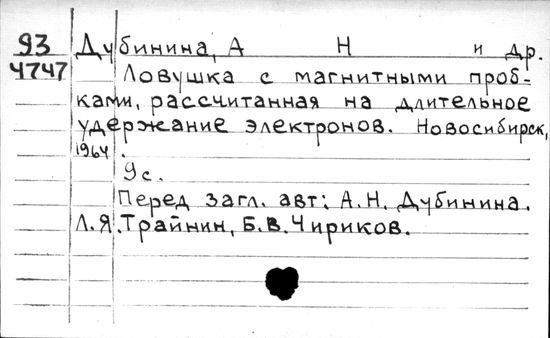 93 Дубинина, А Н и др.
4747 Ловушка с магнитными проб-
ками, рассчитанная на длительное
удержание электронов. Новосибирск,
1964.
9с.
Перед загл. авт: А.Н. Дубинина.
Л.Я.Трайнин, Б.В.Чириков.